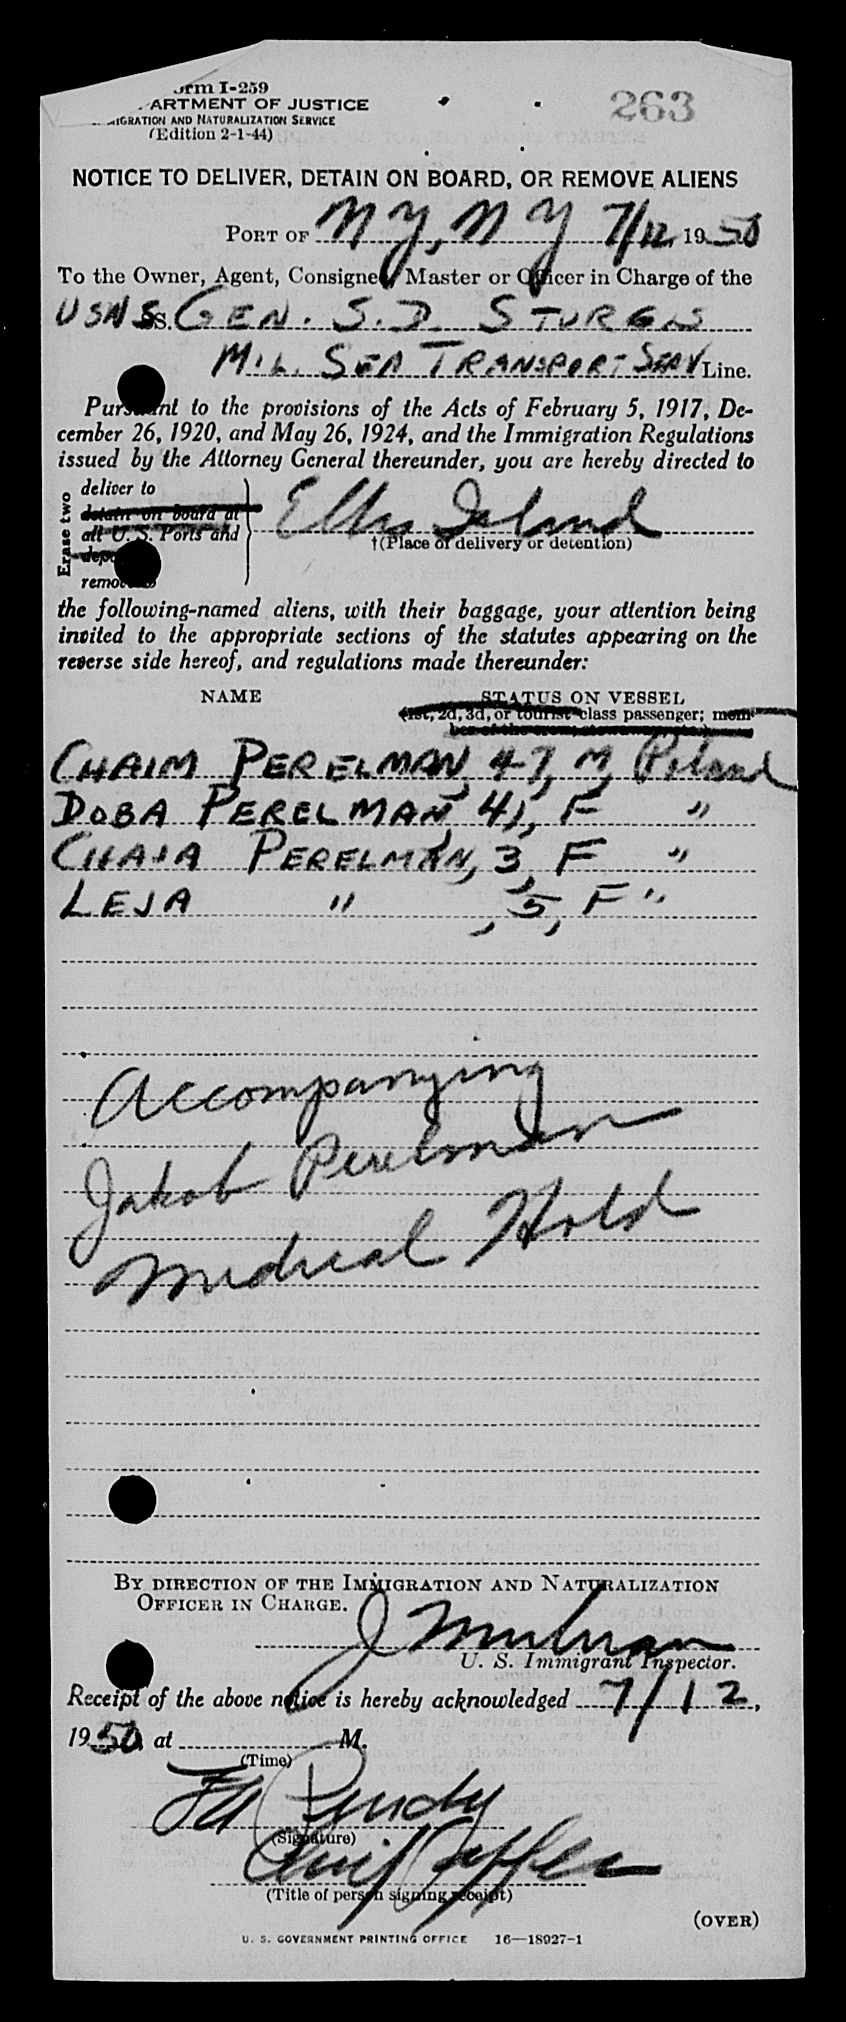 orm I-259
ARTMENT OF JUSTICE
263
IGRATION AND NATURALIZATION SERVICE
(Edition 2-1-44)
NOTICE TO DELIVER, DETAIN ON BOARD, OR REMOVE ALIENS
PORT OF N Y, N Y 7/12, 1950
To the Owner, Agent, Consignee, Master or Officer in Charge of the
USNS SS. GEN. S. D. STURGIS
MIL. SEA TRANSPORT SERV Line.
Pursuant to the provisions of the Acts of February 5, 1917, De-
cember 26, 1920, and May 26, 1924, and the Immigration Regulations
issued by the Attorney General thereunder, you are hereby directed to
Erase two
deliver to
detain on board at
all U. S. Ports and
Ellis Island
†(Place of delivery or detention)
the following-named aliens, with their baggage, your attention being
invited to the appropriate sections of the statutes appearing on the
reverse side hereof, and regulations made thereunder:
NAME STATUS ON VESSEL
(1st, 2d, 3d, or tourist class passenger; mem-
ber of the crew,
CHAIM PERELMAN, 47, M, Poland
DOBA PERELMAN, 41, F "
CHAJA PERELMAN, 3, F "
LEJA " , 5, F "
Accompanying
Jakob Perelman
Medical Hold
BY DIRECTION OF THE IMMIGRATION AND NATURALIZATION
OFFICER IN CHARGE.
U. S. Immigrant Inspector.
Receipt of the above notice is hereby acknowledged 7/12,
1950, at M.
(Time)
(Signature)
(Title of person signing receipt)
(OVER)
U. S. GOVERNMENT PRINTING OFFICE 16—18927-1